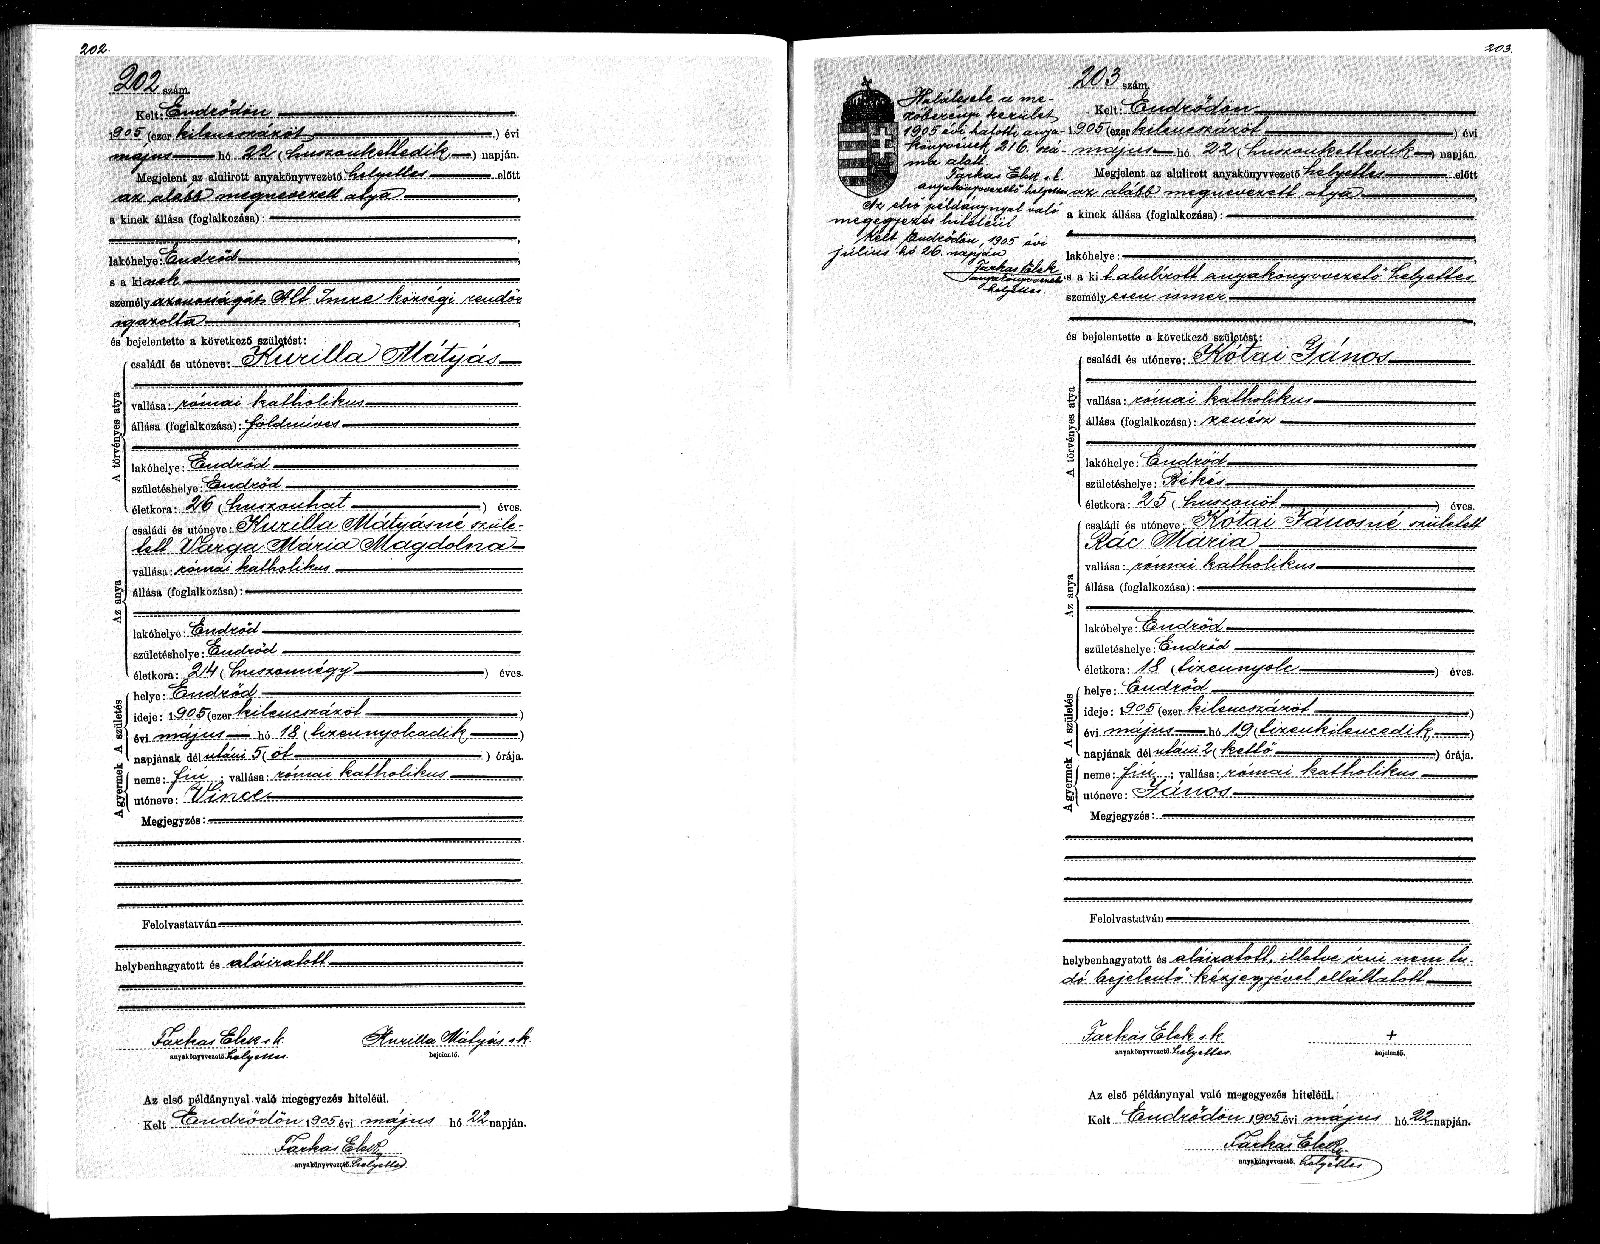 202.
202 szám.
Kelt: Endrődön
1905 (ezer kilencszázöt) évi
május hó 22 (huszonkettedik) napján.
Megjelent az alulirott anyakönyvvezető helyettes előtt
az alább megnevezett atya,
a kinek állása (foglalkozása):
lakóhelye: Endrőd
s a kinek
személyazonosságát Alt Imre községi rendőr
igazolta
és bejelentette a következő születést:
A törvényes atya
családi és utóneve: Kurilla Mátyás
vallása: római katholikus
állása (foglalkozása): földmíves
lakóhelye: Endrőd
születéshelye: Endrőd
életkora: 26 (huszonhat) éves.
Az anya
családi és utóneve: Kurilla Mátyásné szüle-
tett Varga Mária Magdolna
vallása: római katholikus
állása (foglalkozása):
lakóhelye: Endrőd
születéshelye: Endrőd
életkora: 24 (huszonnégy) éves.
A születés
helye: Endrőd
ideje: 1905 (ezer kilencszázöt)
évi május hó 18 (tizennyolcadik)
napjának dél utáni 5 (öt) órája.
A gyermek
neme: fiú; vallása: római katholikus
utóneve: Vince
Megjegyzés:
Felolvastatván
helybenhagyatott és aláiratott
Farkas Elek s.k. Kurilla Mátyás s.k.
anyakönyvvezető helyettes. bejelentő.
Az első példánynyal való megegyezés hiteléül.
Kelt Endrődön 1905 évi május hó 22 napján.
Farkas Elek
anyakönyvvezető helyettes
203.
Halálesete a me-
zőberényi kerület
1905 évi halotti anya-
könyvének 216. szá-
ma alatt.
Farkas Elek s.k.
anyakönyvvezető helyettes
Az első példánynyal való
megegyezés hiteléül
Kelt Endrődön, 1905 évi
július hó 26. napján
Farkas Elek
anyakönyvvezető
helyettes.
203 szám.
Kelt: Endrődön
1905 (ezer kilencszázöt) évi
május hó 22 (huszonkettedik) napján.
Megjelent az alulirott anyakönyvvezető helyettes előtt
az alább megnevezett atya
a kinek állása (foglalkozása):
lakóhelye:
s a kit alulírott anyakönyvvezető helyettes
személyesen ismer
és bejelentette a következő születést:
A törvényes atya
családi és utóneve: Kótai János
vallása: római katholikus
állása (foglalkozása): zenész
lakóhelye: Endrőd
születéshelye: Békés
életkora: 25 (huszonöt) éves.
Az anya
családi és utóneve: Kótai Jánosné született
Rác Mária
vallása: római katholikus
állása (foglalkozása):
lakóhelye: Endrőd
születéshelye: Endrőd
életkora: 18 (tizennyolc) éves.
A születés
helye: Endrőd
ideje: 1905 (ezer kilencszázöt)
évi május hó 19 (tizenkilencedik)
napjának dél utáni 2 (kettő) órája.
A gyermek
neme: fiú; vallása: római katholikus
utóneve: János
Megjegyzés:
Felolvastatván
helybenhagyatott és aláiratott, illetve írni nem tu-
dó bejelentő kézjegyével elláttatott
Farkas Elek s.k. +
anyakönyvvezető helyettes. bejelentő.
Az első példánynyal való megegyezés hiteléül.
Kelt Endrődön 1905 évi május hó 22 napján.
Farkas Elek
anyakönyvvezető. helyettes